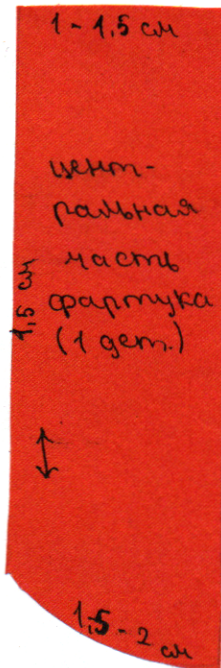 1 - 1,5 см
цент-
ральная
часть
фартука
(1 дет.)
1,5 см
1,5 - 2 см